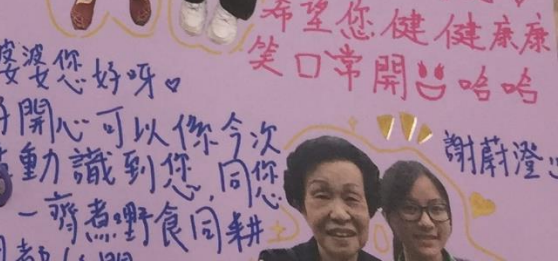 希望您健健康康
笑口常開 哈哈
婆婆您好呀
開心可以係今次
動識到您,同您
一齊煮嘢食同耕
謝蔚澄